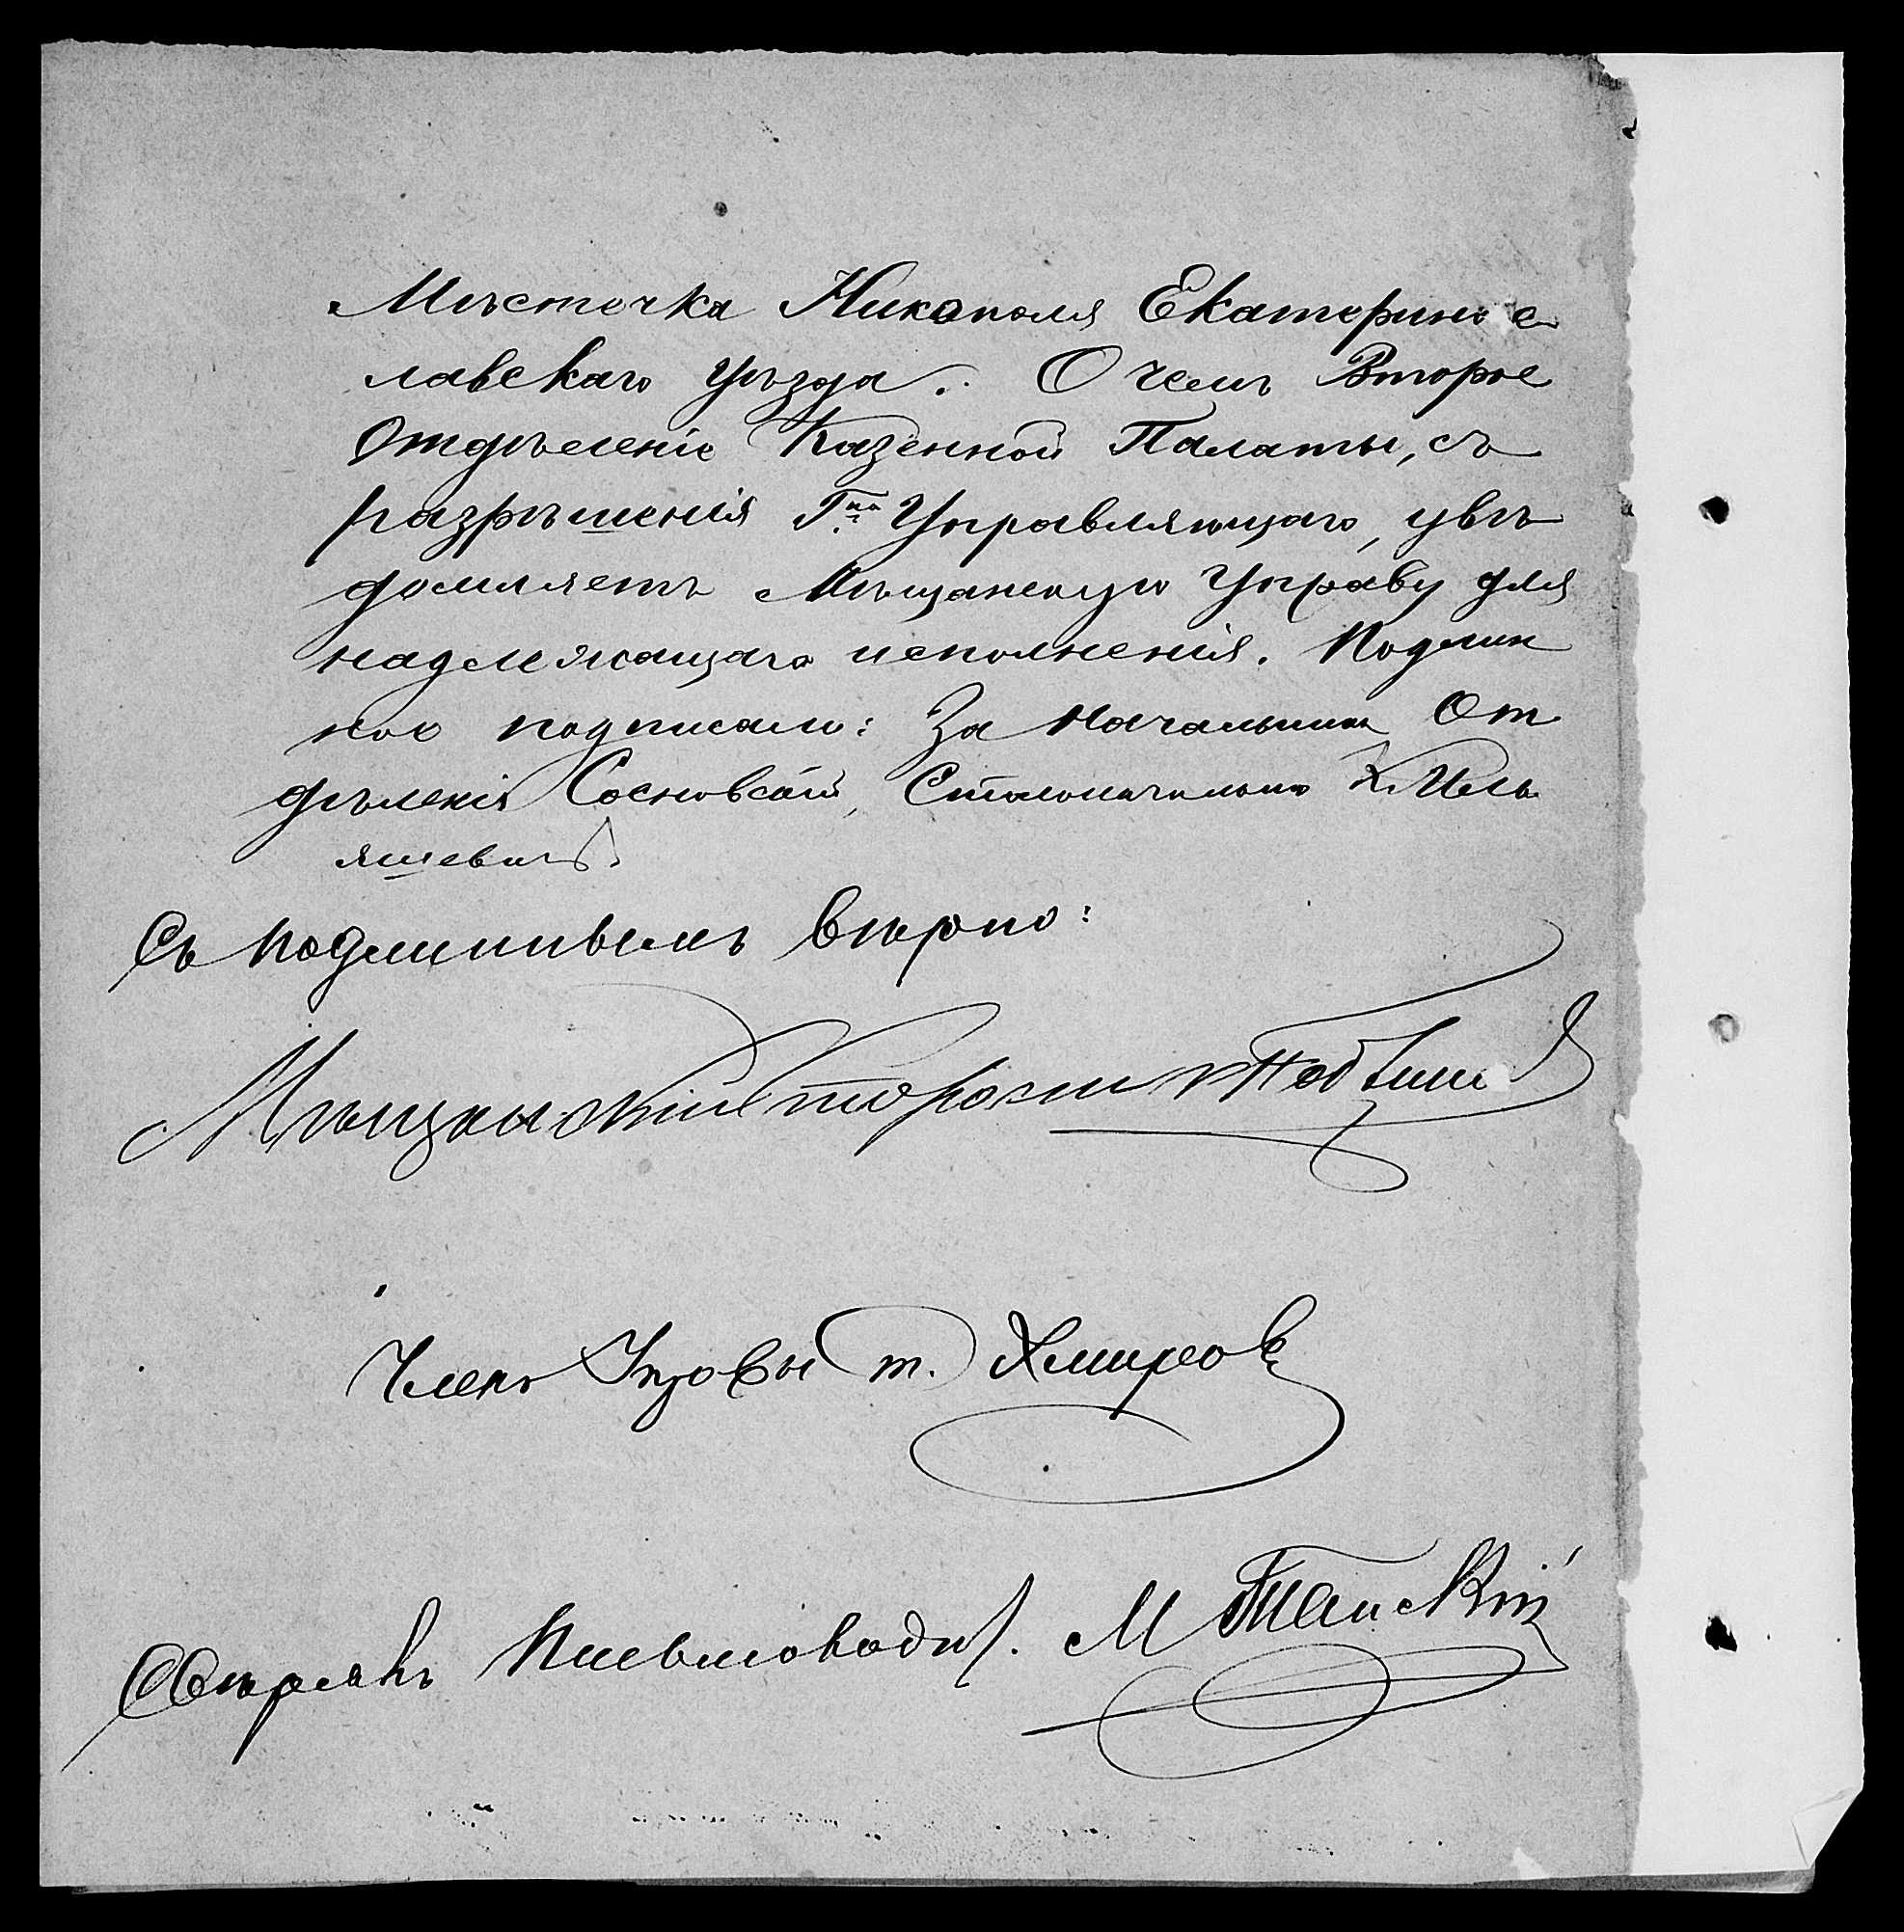 Мѣстечка Никополя Екатеринос
лавскаго уѣзда. О чемъ Второе
Отдѣленіе Казенной Палаты, съ
разрѣшенія Г<sup>на</sup> Управляющаго, увѣ
домляетъ Мѣщанскую Управу для
надлежащаго исполненія. Подлин
ное подписали: За Начальника От
дѣленія Сосновскій, Столоначальникъ К. Иль
яшевичъ.
Съ подлиннымъ вѣрно:
Мѣщанскій Староста
Членъ Управы т. Хмиров
Свѣрялъ Письмоводит. М